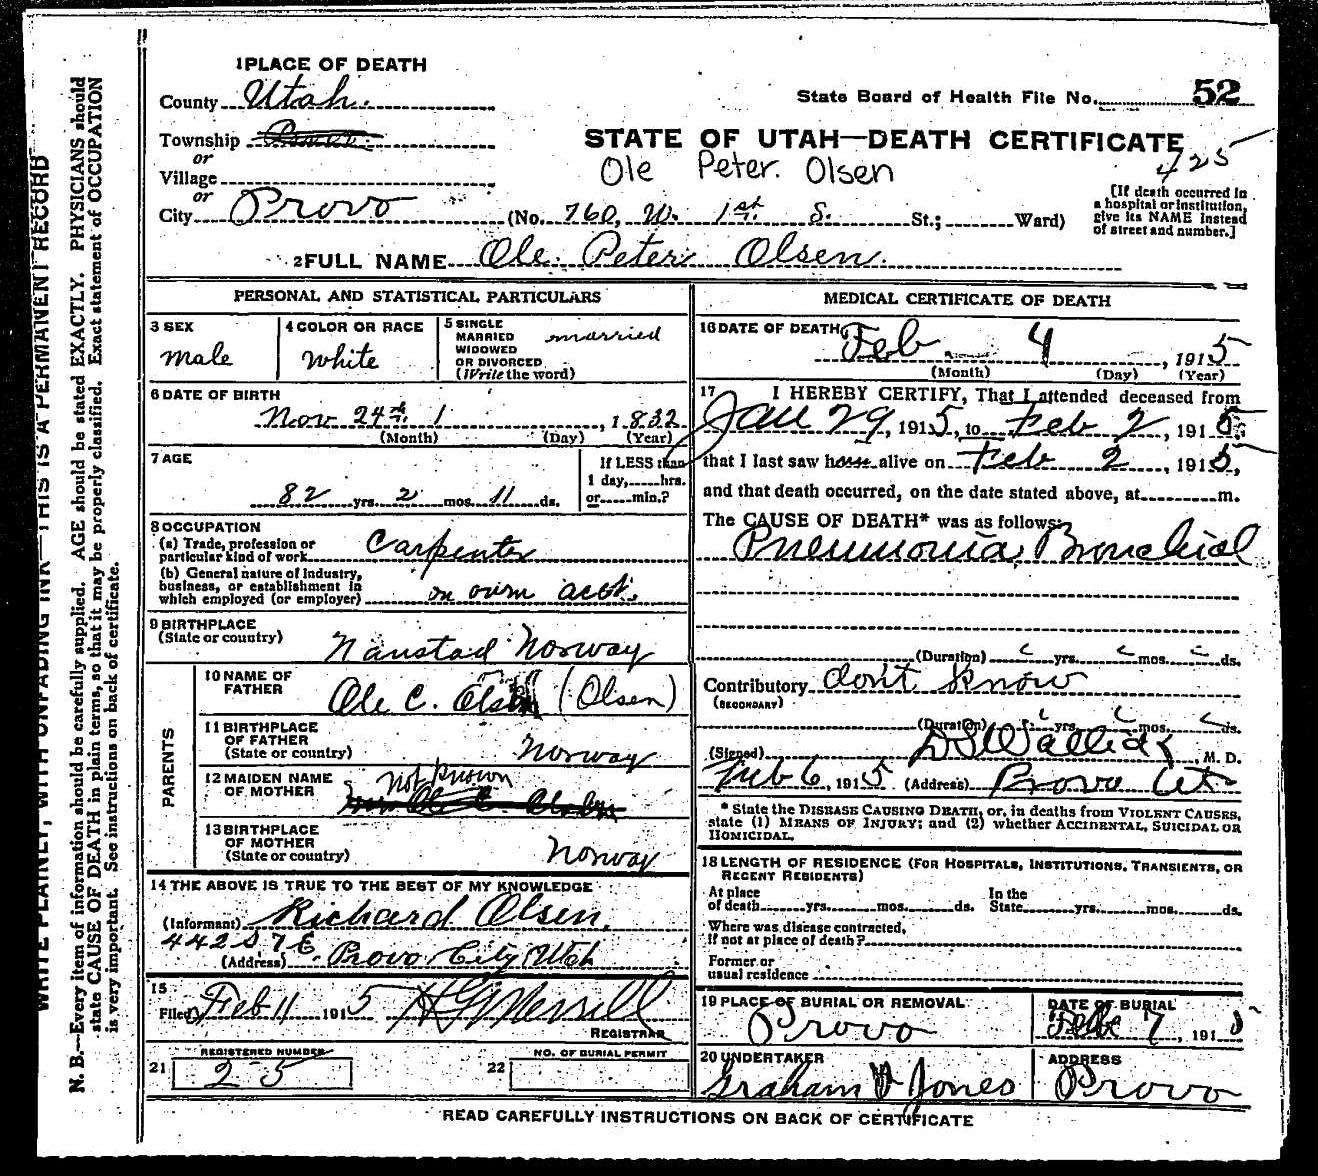 1 PLACE OF DEATH
County Utah.
State Board of Health File No. 52
Township Provo
or
Village
or
City Provo
STATE OF UTAH—DEATH CERTIFICATE
Ole Peter. Olsen
425
[If death occurred in
a hospital or institution,
give its NAME instead
of street and number.]
(No. 760, W. 1st. S. St.; Ward)
2 FULL NAME Ole Peter Olsen.
PERSONAL AND STATISTICAL PARTICULARS
3 SEX
male
4 COLOR OR RACE
White
5 SINGLE
MARRIED
WIDOWED
OR DIVORCED
(Write the word)
married
6 DATE OF BIRTH
Nov 24th 1, 1832
(Month) (Day) (Year)
7 AGE
82 yrs. 2 mos. 11 ds.
If LESS than
1 day, hrs.
or min.?
8 OCCUPATION
(a) Trade, profession or
particular kind of work Carpenter
(b) General nature of industry,
business, or establishment in
which employed (or employer) on own acct.
9 BIRTHPLACE
(State or country) Nanstad Norway
PARENTS
10 NAME OF
FATHER Ole C. Olsen (Olsen)
11 BIRTHPLACE
OF FATHER
(State or country) Norway
12 MAIDEN NAME
OF MOTHER Not known
13 BIRTHPLACE
OF MOTHER
(State or country) Norway
14 THE ABOVE IS TRUE TO THE BEST OF MY KNOWLEDGE
(Informant) Richard Olsen,
442 S 7 E.
(Address) Provo City Utah
15
Filed Feb 11 1915 H G Merrill
REGISTRAR
21 REGISTERED NUMBER
25
22 NO. OF BURIAL PERMIT
MEDICAL CERTIFICATE OF DEATH
16 DATE OF DEATH
Feb 4, 1915
(Month) (Day) (Year)
17 I HEREBY CERTIFY, That I attended deceased from
Jan 29, 1915, to Feb 2, 1915,
that I last saw alive on Feb 2, 1915,
and that death occurred, on the date stated above, at m.
The CAUSE OF DEATH* was as follows:
Pneumonia, Bronchial
(Duration) yrs. mos. ds.
Contributory don't know
(SECONDARY)
(Duration) yrs. mos. ds.
(Signed) M. D.
Feb 6, 1915 (Address) Provo Ut
* State the DISEASE CAUSING DEATH, or, in deaths from VIOLENT CAUSES,
state (1) MEANS OF INJURY; and (2) whether ACCIDENTAL, SUICIDAL OR
HOMICIDAL.
18 LENGTH OF RESIDENCE (FOR HOSPITALS, INSTITUTIONS, TRANSIENTS, OR
RECENT RESIDENTS)
At place
of death yrs. mos. ds.
In the
State yrs. mos. ds.
Where was disease contracted,
if not at place of death?
Former or
usual residence
19 PLACE OF BURIAL OR REMOVAL
Provo
DATE OF BURIAL
Feb 7, 1915
20 UNDERTAKER
Graham & Jones
ADDRESS
Provo
READ CAREFULLY INSTRUCTIONS ON BACK OF CERTIFICATE
WRITE PLAINLY, WITH UNFADING INK—THIS IS A PERMANENT RECORD
N. B.—Every item of information should be carefully supplied. AGE should be stated EXACTLY. PHYSICIANS should
state CAUSE OF DEATH in plain terms, so that it may be properly classified. Exact statement of OCCUPATION
is very important. See instructions on back of certificate.